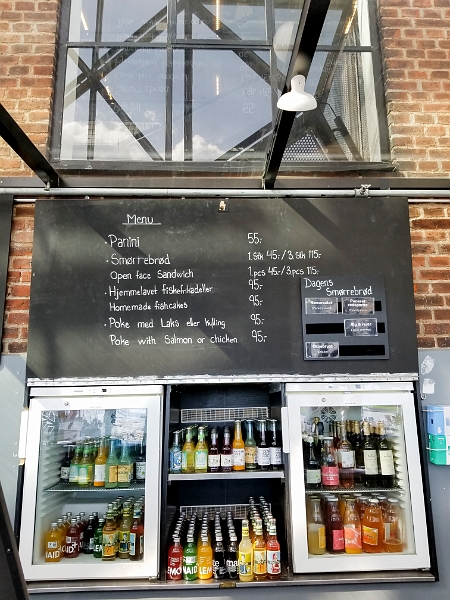 Menu
• Panini 55,-
• Smørrebrød 1.stk 45,-/3.stk 115,-
Open face Sandwich 1.pcs 45,-/3.pcs 115,-
• Hjemmelavet fiskefrikadeller 95,-
Homemade fishcakes 95,-
• Poke med Laks eller kylling 95,-
Poke with Salmon or chicken 95,-
Dagens
Smørrebrød